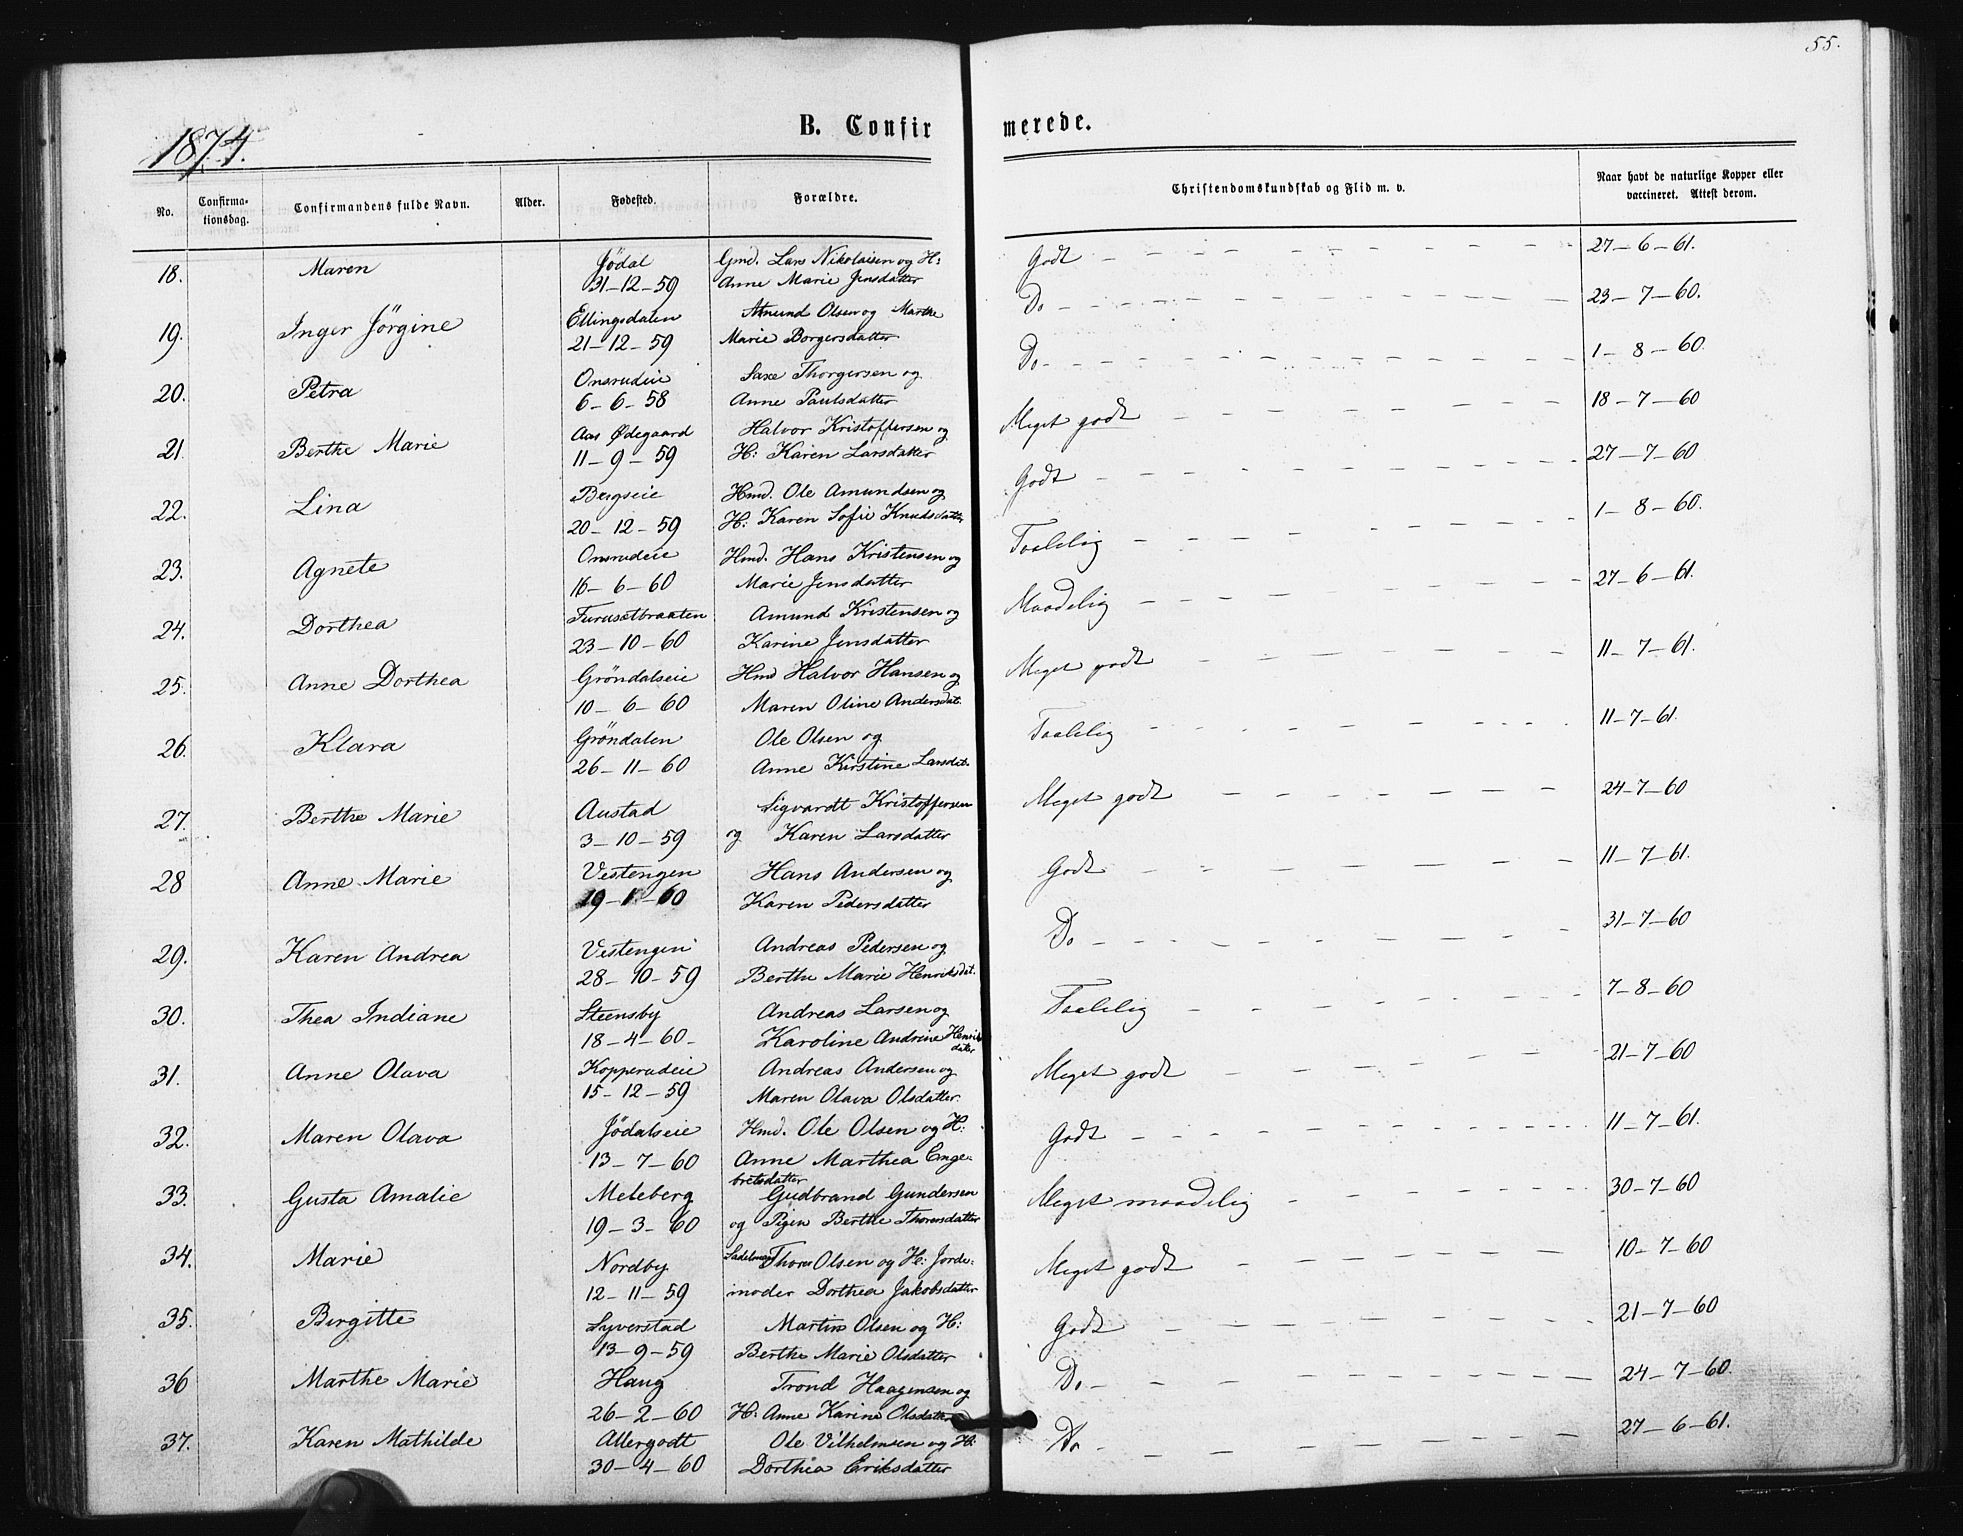 55.
1874.
B. Confirmerede.
No. Confirmationsdag. Confirmandens fulde Navn. Alder. Fødested. Forældre. Christendomskundskab og Flid m. v. Naar havt de naturlige Kopper eller vaccineret. Attest derom.
18. Maren Jödal Gmd. Lars Nikolaisen og H: Godt 27-6-61.
31-12-59 Anne Marie Jensdatter
19. Inger Jörgine Ellingsdalen Amund Olsen og Marthe Do 23-7-60.
21-12-59 Marie Borgersdatter
20. Petra Onsrudeie Saxe Thorgersen og Do 1-8-60.
6-6-58 Anne Paulsdatter
21. Berthe Marie Aas Ødegaard Halvor Kristoffersen og Meget godt 18-7-60
11-9-59 H: Karen Larsdatter
22. Lina Bergseie Hmd. Ole Amundsen og Godt 27-7-60
20-12-59 H: Karen Sofie Knudsdatter
23. Agnete Onsrudeie Hmd. Hans Kristensen og Taalelig 1-8-60.
16-6-60 Marie Jensdatter
24. Dorthea Furusetbraaten Amund Kristensen og Maadelig 27-6-61.
23-10-60 Karine Jensdatter
25. Anne Dorthea Gröndalseie Hmd Halvor Hansen og Meget godt 11-7-61.
10-6-60 Maren Oline Andersdat.
26. Klara Gröndalen Ole Olsen og Taalelig 11-7-61.
26-11-60 Anne Kirstine Larsdat.
27. Berthe Marie Austad Sigvardt Kristoffersen Meget godt 24-7-60
3-10-59 og Karen Larsdatter
28 Anne Marie Vestengen Hans Andersen og Godt 11-7-61.
19-1-60 Karen Pedersdatter
29. Karen Andrea Vestengen Andreas Pedersen og Do 31-7-60
28-10-59 Berthe Marie Henriksdat.
30. Thea Indiane Steensby Andreas Larsen og Taalelig 7-8-60
18-4-60- Karoline Andrine Henriksdatter
31. Anne Olava Kopperudeie Andreas Andersen og Meget godt 21-7-60
15-12-59 Maren Olava Olsdatter
32. Maren Olava Jödalseie Hmd. Ole Olsen og H: Godt 11-7-61.
13-7-60 Anne Marthea Enge-
bretsdatter
33. Gusta Amalie Meleberg Gudbrand Gundersen Meget maadelig 30-7-60
19-3-60 og Pigen Berthe Thorersdatter
34. Marie Nordby Thorer Olsen og H: Jorde- Meget godt 10-7-60
12-11-59 moder Dorthea Jakobsdatter
35. Birgitte Syverstad Martin Olsen og H: Godt 21-7-60
13-9-59 Berthe Marie Olsdatter
36 Marthe Marie Haug Trond Haagensen og Do 24-7-60.
26-2-60 H: Anne Karine Olsdatter
37. Karen Mathilde Allergodt Ole Vilhelmsen og H: Do 27-6-61.
30-4-60 Dorthea Eriksdatter